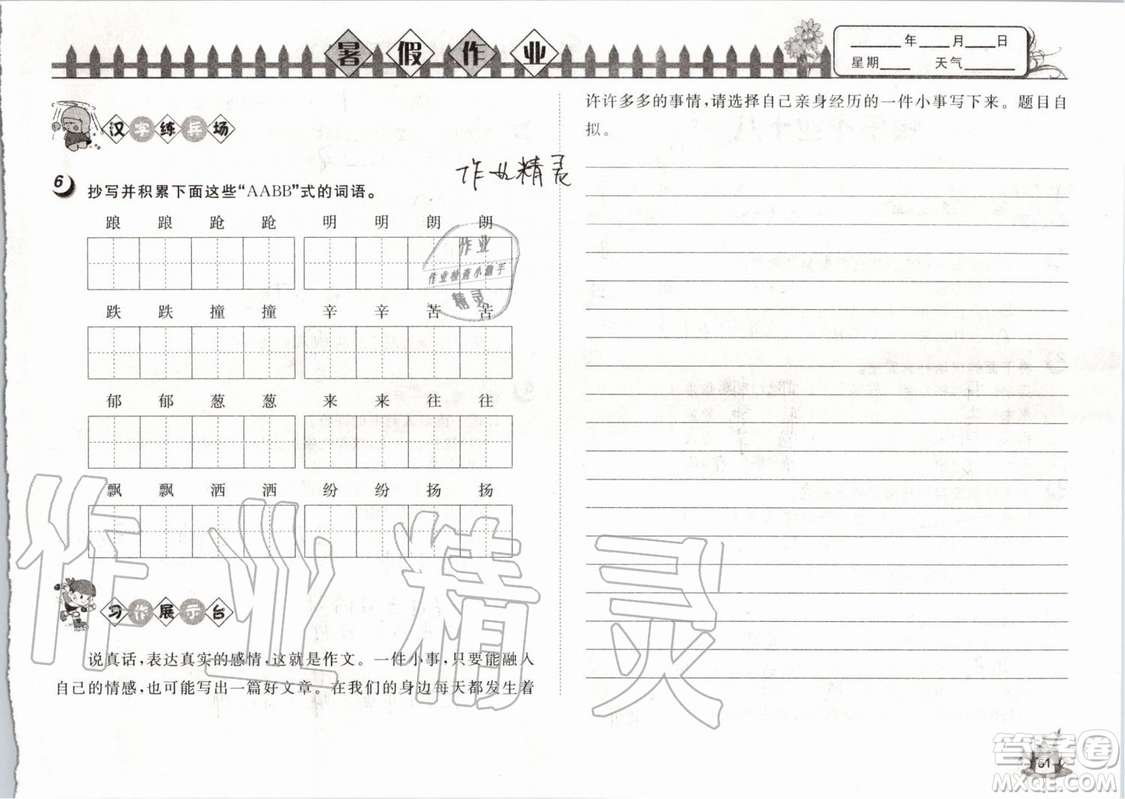 暑假作业
____年___月___日
星期____ 天气____
汉字练兵场
作业精灵
6 抄写并积累下面这些“AABB”式的词语。
踉 踉 跄 跄 明 明 朗 朗
作业
作业检查小助手
精灵
跌 跌 撞 撞 辛 辛 苦 苦
郁 郁 葱 葱 来 来 往 往
飘 飘 洒 洒 纷 纷 扬 扬
作业精灵
习作展示台
说真话，表达真实的感情，这就是作文。一件小事，只要能融入
自己的情感，也可能写出一篇好文章。在我们的身边每天都发生着
许许多多的事情，请选择自己亲身经历的一件小事写下来。题目自
拟。
61
答案卷
MXQE.COM